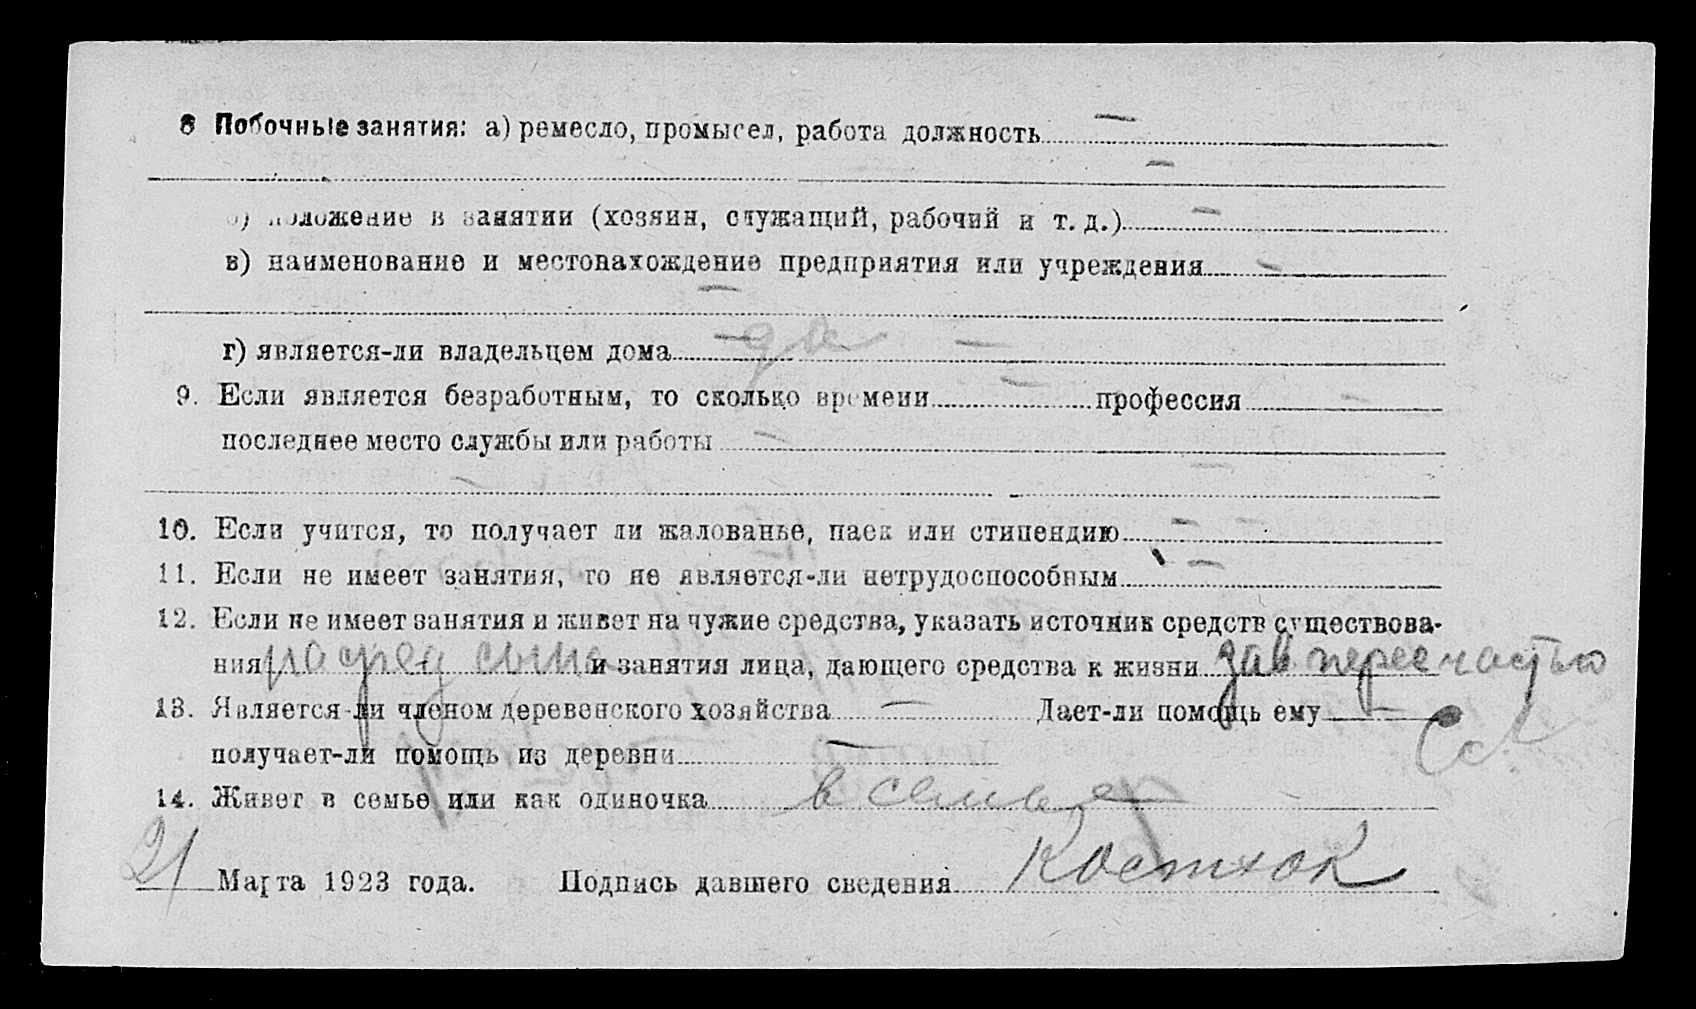 8 Побочные занятия: а) ремесло, промысел, работа должность —
—
б) положение в занятии (хозяин, служащий, рабочий и т. д.) —
в) наименование и местонахождение предприятия или учреждения —
—
г) является-ли владельцем дома — да —
9. Если является безработным, то сколько времени — профессия —
последнее место службы или работы — —
—
10. Если учится, то получает ли жалованье, паек или стипендию — —
11. Если не имеет занятия, то не является-ли нетрудоспособным —
12. Если не имеет занятия и живет на чужие средства, указать источник средств существова-
ния на сред сына и занятия лица, дающего средства к жизни зав пересчастью
13. Является-ли членом деревенского хозяйства — Дает-ли помощь ему —
получает-ли помощь из деревни —
14. Живет в семье или как одиночка в семье
21 Марта 1923 года. Подпись давшего сведения Костюк